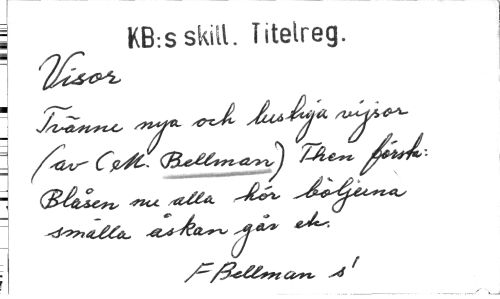 KB:s skill. Titelreg.
Visor
Tvänne nya och lustiga vijsor
(av C.M. Bellman) Then första:
Blåsen nu alla hör böljorna
smålla åskan går etc.
F Bellman s!